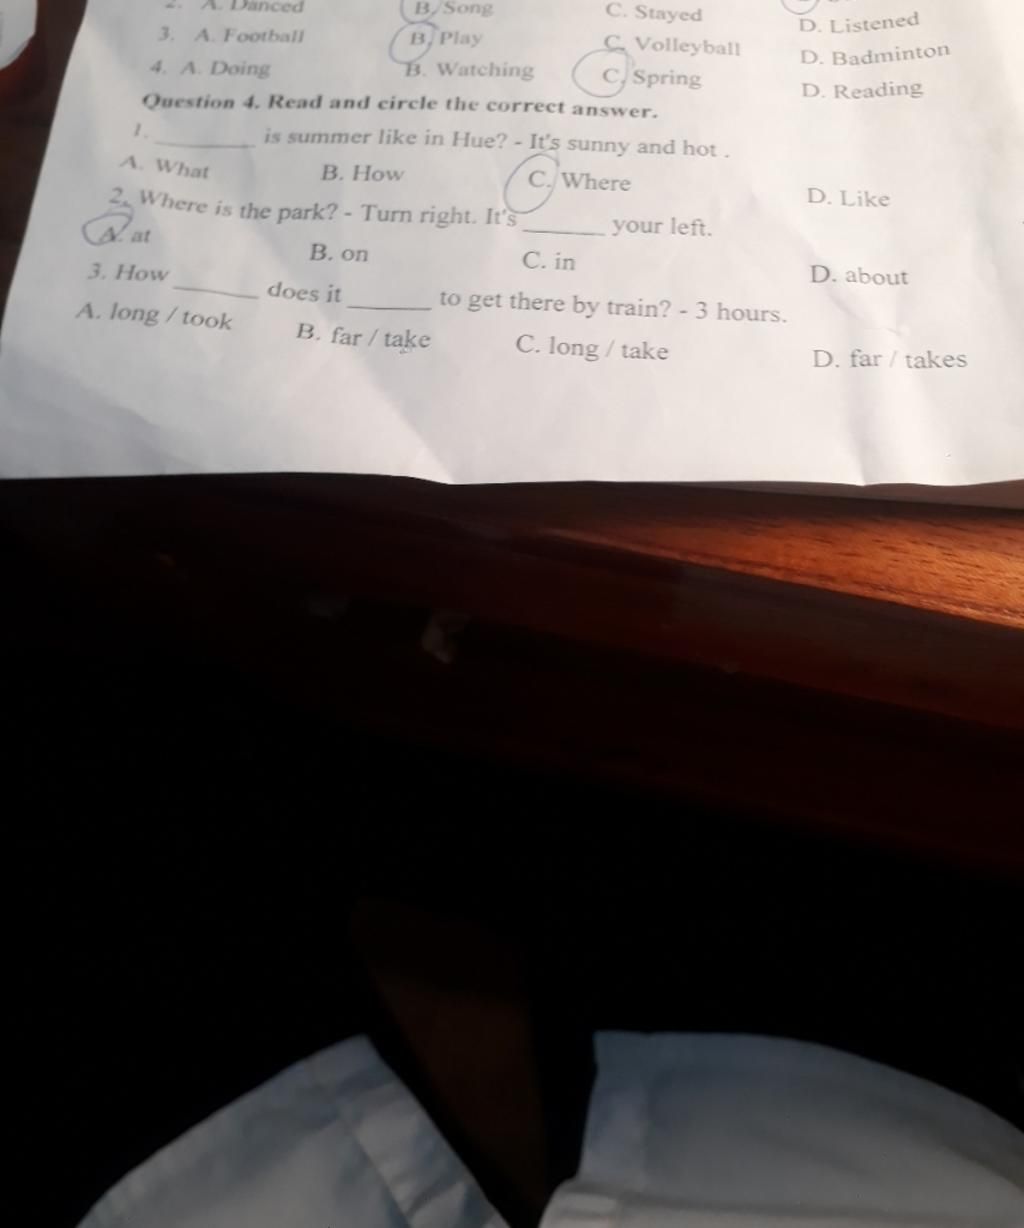 2. A. Danced B. Song C. Stayed D. Listened
3. A. Football B. Play C. Volleyball D. Badminton
4. A. Doing B. Watching C. Spring D. Reading
Question 4. Read and circle the correct answer.
1. ________ is summer like in Hue? - It's sunny and hot .
A. What B. How C. Where D. Like
2. Where is the park? - Turn right. It's ________ your left.
A. at B. on C. in D. about
3. How ________ does it ________ to get there by train? - 3 hours.
A. long / took B. far / take C. long / take D. far / takes